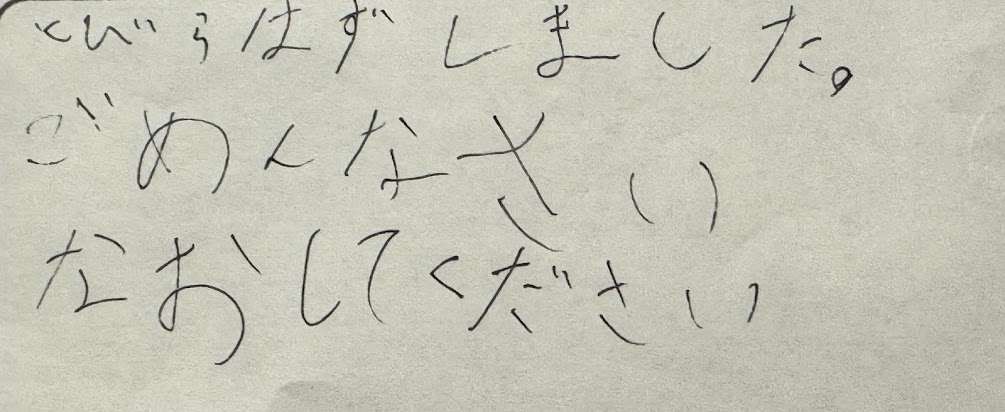 とびらはずしました。
ごめんなさい
なおしてください